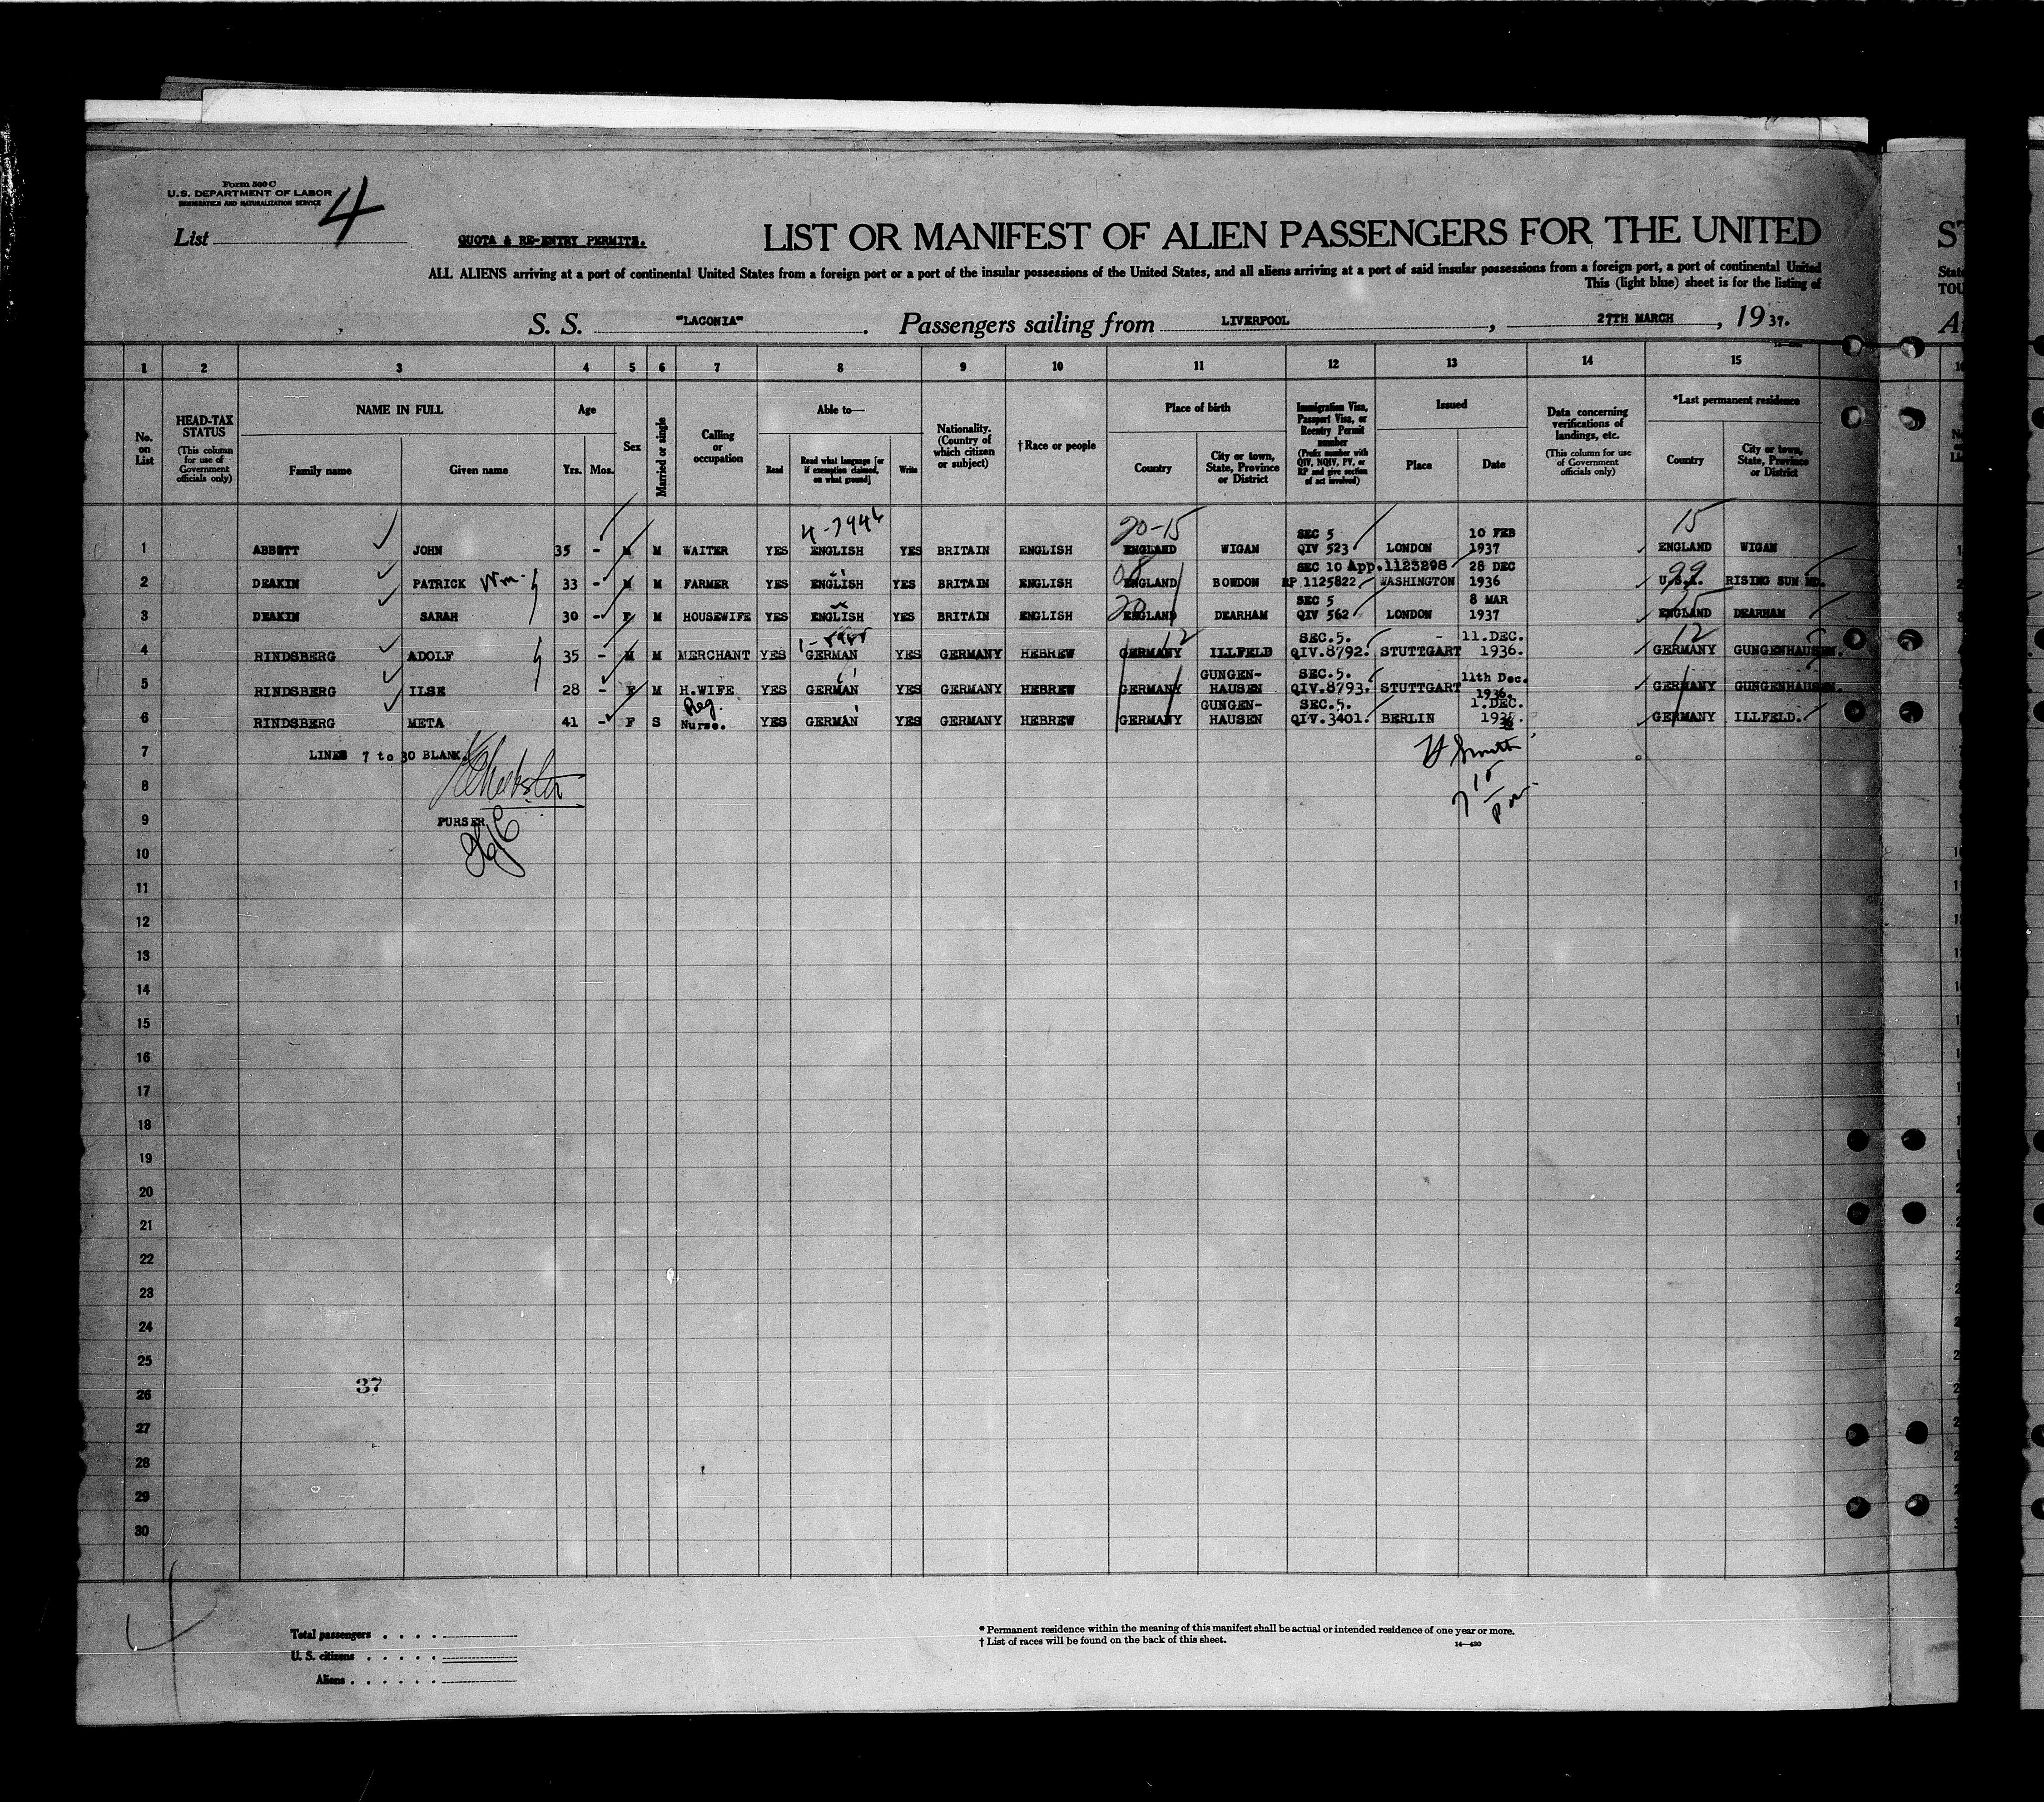 Form 500 C
U.S. DEPARTMENT OF LABOR
IMMIGRATION AND NATURALIZATION SERVICE
List 4
QUOTA & RE-ENTRY PERMITS.
LIST OR MANIFEST OF ALIEN PASSENGERS FOR THE UNITED
ALL ALIENS arriving at a port of continental United States from a foreign port or a port of the insular possessions of the United States, and all aliens arriving at a port of said insular possessions from a foreign port, a port of continental United
This (light blue) sheet is for the listing of
S. S. "LACONIA". Passengers sailing from LIVERPOOL, 27TH MARCH, 1937.
1 2 3 4 5 6 7 8 9 10 11 12 13 14 15
No. on List
HEAD-TAX STATUS
(This column for use of Government officials only)
NAME IN FULL
Family name
Given name
Age
Yrs. Mos.
Sex
Married or single
Calling or occupation
Able to—
Read
Read what language [or if exemption claimed, on what ground]
Write
Nationality. (Country of which citizen or subject)
†Race or people
Place of birth
Country
City or town, State, Province or District
Immigration Visa, Passport Visa, or Reentry Permit number
(Prefix number with QIV, NQIV, PV, or RP and give section of act involved)
Issued
Place
Date
Data concerning verifications of landings, etc.
(This column for use of Government officials only)
*Last permanent residence
Country
City or town, State, Province or District
20-15 15
1 ABBOTT JOHN 35 - M M WAITER YES ENGLISH YES BRITAIN ENGLISH ENGLAND WIGAN SEC 5 QIV 523 LONDON 10 FEB 1937 ENGLAND WIGAN
08 99
2 DEAKIN PATRICK Wm. 33 - M M FARMER YES ENGLISH YES BRITAIN ENGLISH ENGLAND BOWDON SEC 10 App.1123298 RP 1125822 WASHINGTON 28 DEC 1936 U.S.A. RISING SUN MD.
20 15
3 DEAKIN SARAH 30 - F M HOUSEWIFE YES ENGLISH YES BRITAIN ENGLISH ENGLAND DEARHAM SEC 5 QIV 562 LONDON 8 MAR 1937 ENGLAND DEARHAM
12 12
4 RINDSBERG ADOLF 35 - M M MERCHANT YES GERMAN YES GERMANY HEBREW GERMANY ILLFELD SEC.5. QIV.8792. STUTTGART 11.DEC. 1936. GERMANY GUNGENHAUSEN.
5 RINDSBERG ILSE 28 - F M H.WIFE YES GERMAN YES GERMANY HEBREW GERMANY GUNGEN-HAUSEN SEC.5. QIV.8793. STUTTGART 11th Dec. 1936. GERMANY GUNGENHAUSEN.
6 RINDSBERG META 41 - F S Reg. Nurse. YES GERMAN YES GERMANY HEBREW GERMANY GUNGEN-HAUSEN SEC.5. QIV.3401. BERLIN 1.DEC. 1936. GERMANY ILLFELD.
7 LINES 7 to 30 BLANK.
8
9 PURSER
10
11
12
13
14
15
16
17
18
19
20
21
22
23
24
25
26 37
27
28
29
30
Total passengers
U. S. citizens
Aliens
* Permanent residence within the meaning of this manifest shall be actual or intended residence of one year or more.
† List of races will be found on the back of this sheet.
14—430